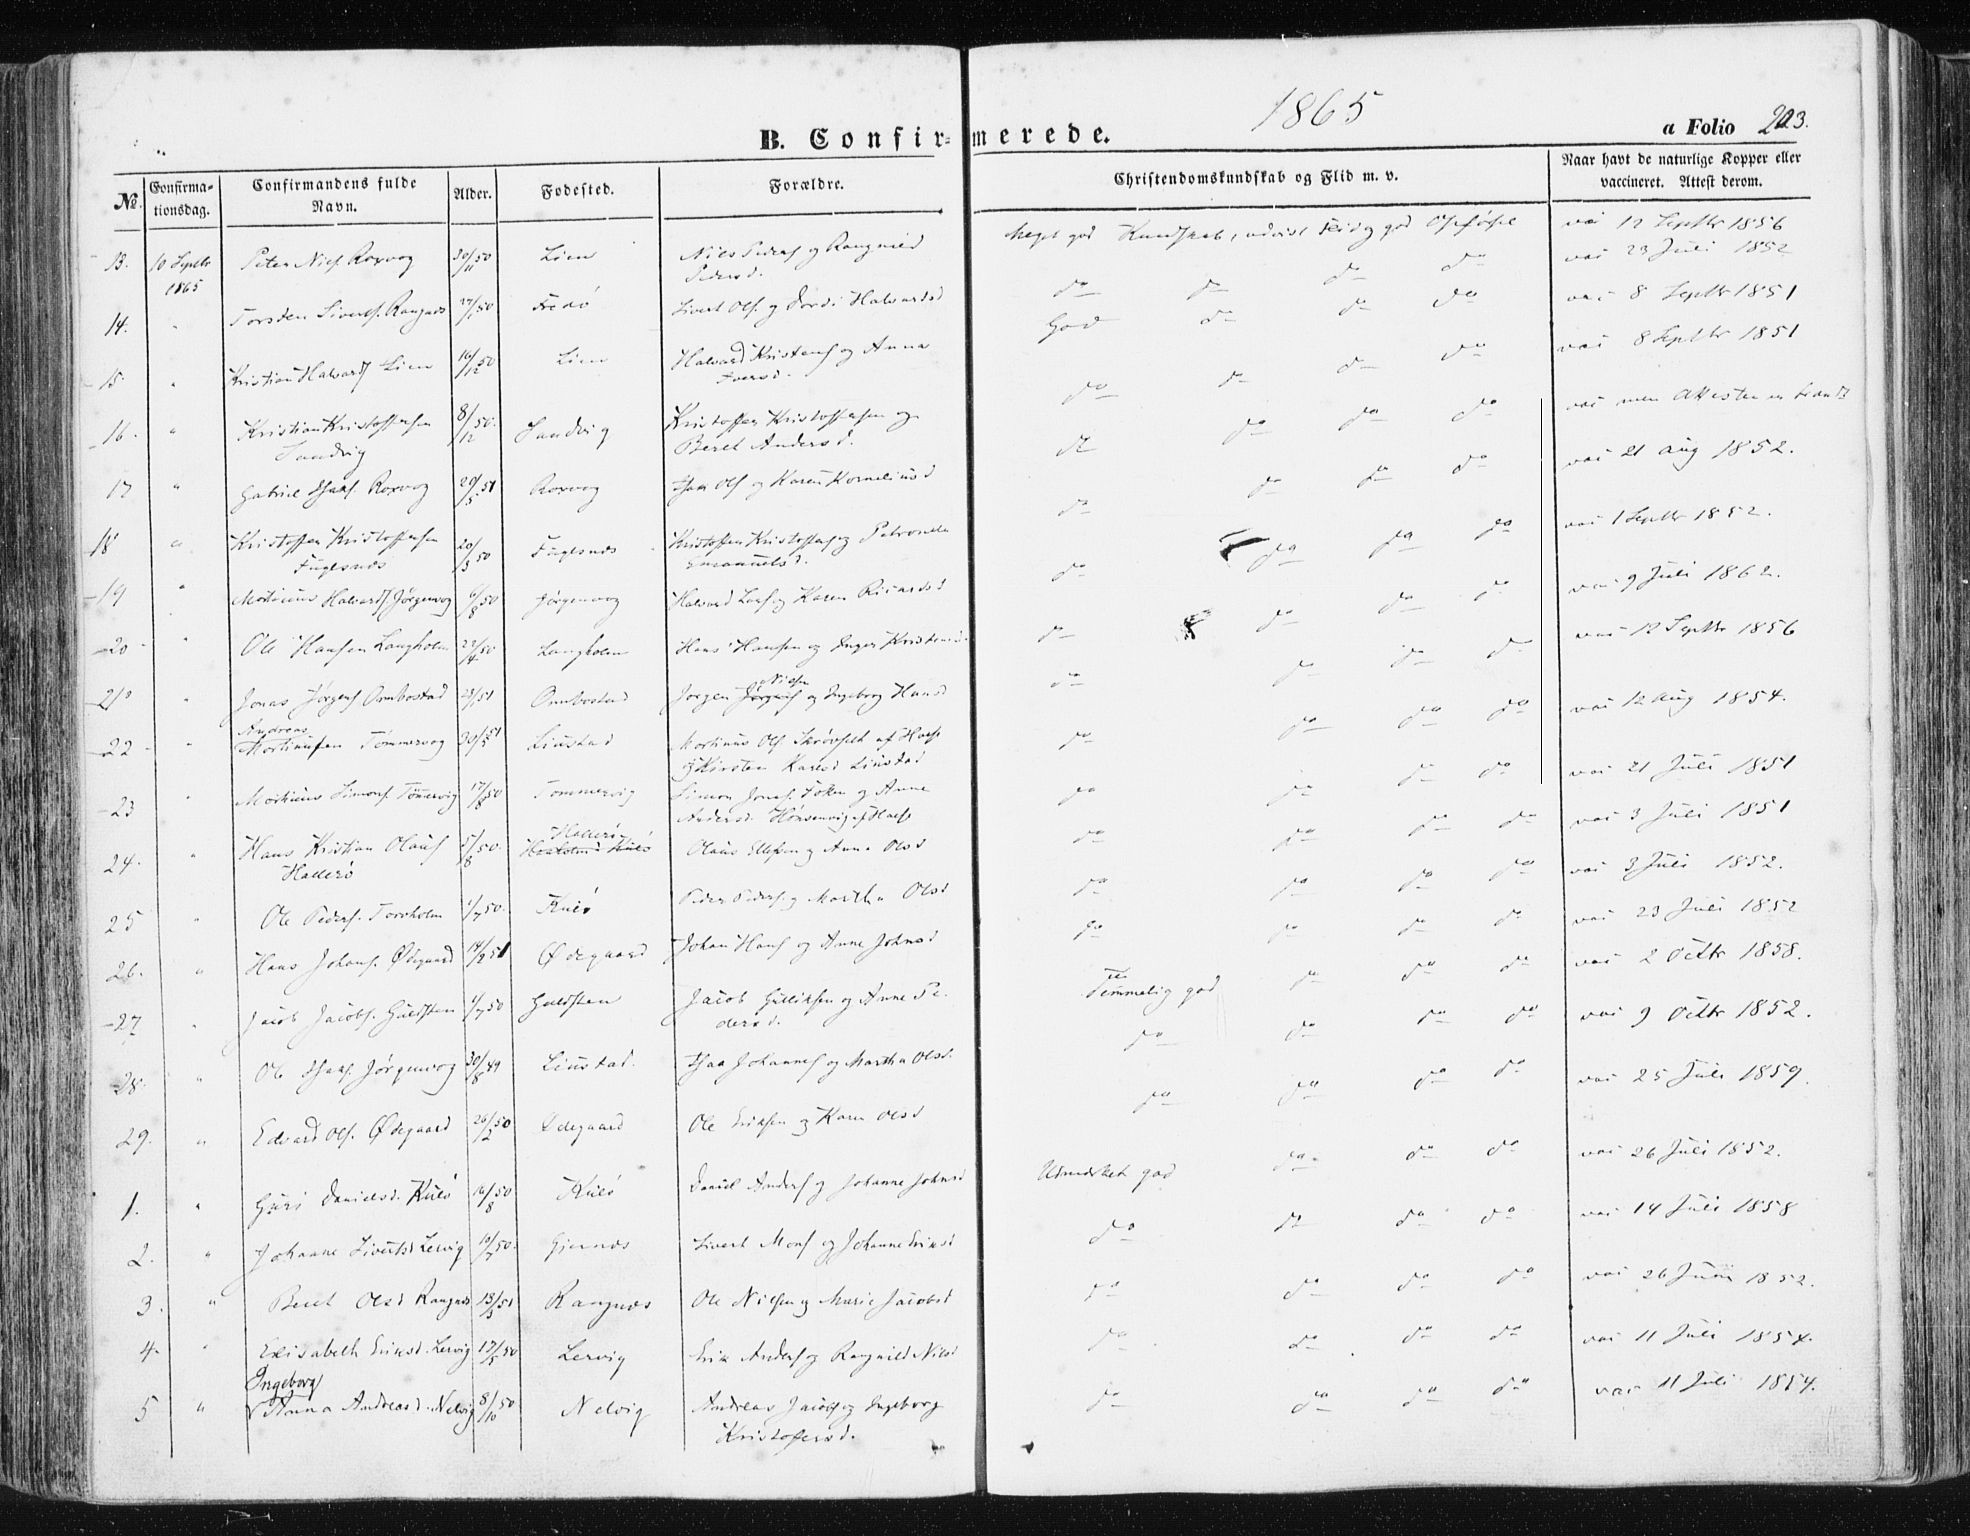 1865
B. Confirmerede.
a Folio 203.
No. Confirmationsdag. Confirmandens fulde Navn. Alder. Fødested. Forældre. Christendomskundskab og Flid m. v. Naar havt de naturlige Kopper eller vaccineret. Attest derom.
13. 10 Septbr 1865 Peter Niels. Roxvog 30/11 50 Lien Niels Peders og Rangnild Pedersd. Meget god Kundskab, udvist Flid og god Opførsel vac 12 Septbr 1856
14. " Torsten Siverts. Rangnæs 27/1 50 Fredø Sivert Ols. og Dordi Halvardsd do do do do vac 23 Juli 1852
15. " Kristian Halvards Lien 16/12 50 Lien Halvard Kristens og Anna Iversd. God do do do vac 8 Septbr 1851
16. " Kristian Kristoffersen Sandvig 8/12 50. Sandvig Kristoffer Kristoffersen og Beret Andersd. do do do do vac 8 Septbr 1851
17 " Gabriel Isaks. Roxvog 20/5 51 Roxvog Isak Ols og Karen Korneliusd do do do do vac men Attesten er brændt
18 " Kristoffer Kristoffersen Fuglesnæs 20/3 50 Fuglesnæs Kristoffer Kristoffers og Petronelle Emanuelsd. do do do do vac 21 Aug 1852.
19 " Martinus Halvards Jørgenvog 6/8 50 Jørgenvog Halvard Lars og Karen Ricardsd do do do do vac 1 Septbr 1852.
20 " Ole Hansen Langholm 22/4 50 Langholm Hans Hansen og Inger Kristensd. do do do do vac 9 Juli 1862.
21 " Jonas Jørgens Ormbostad 23/1 51 Ormbostad Jørgen Jørgens Nielsen og Ingeborg Hansd do do do do vac 12 Septbr 1856
22 " Andreas Martinussen Tømmervog 30/5 51 Liustad Martinus Ols. og Kirsten Karlsd Liustad do do do do vac 12 Aug 1854.
23 " Martinus Simons. Tømmervig 17/8 50 Tømmervig Simon Jonas. og Anne Andersd. do do do do vac 21 Juli 1851
24. " Hans Kristian Olaus Hallerø 5/8 50. Hallerø Olaus Ellefsen og Anna Olsd do do do do vac 3 Juli 1851
25 " Ole Peders. Torvholm 1/7 50. Kulø Peder Peders. og Martha Olsd do do do do vac 3 Juli 1852.
26. " Hans Johans. Ødegaard 14/2 51 Ødegaard Johan Hans og Anne Johnsd do do do do vac 23 Juli 1852
27 " Jacob Jacobs. Guldsten 1/7 50 Guldsten Jacob Gulliksen og Anne Pedersd. Temmelig god do do do vac 2 Octbr 1858.
28. " Ole Isaks. Jørgenvog 30/8 49 Liustad. Isak Johannes og Martha Olsd. do do do do vac 9 Octbr 1852.
29. " Edvard Ols. Ødegaard 26/2 50 Ødegaard Ole Eriksen og Karen Olsd do do do do vac 25 Juli 1859.
1. " Guri Danielsd. Kulø 16/8 50 Kulø Daniel Anders og Johanne Johnsd Udmærket god do do do vac 26 Juli 1852.
2. " Johanne Sivertsd Lervig 10/7 50. Gjernæs Sivert Mons og Johanne Eriksd do do do do vac 14 Juli 1858
3. " Beret Olsd Rangnæs 13/3 51 Rangnæs Ole Nielsen og Marie Jacobsd do do do do vac 26 Juni 1852.
4. " Elisabeth Eriksd. Lervig 17/5 50 Lervig Erik Anders og Rangnild Nilsd do do do do vac 11 Juli 1854.
5 " Ingeborg Anna Andreasd. Nelvig 8/10 50 Nelvig Andreas Jacobs og Ingeborg Kristofersd. do do do do vac 11 Juli 1854.